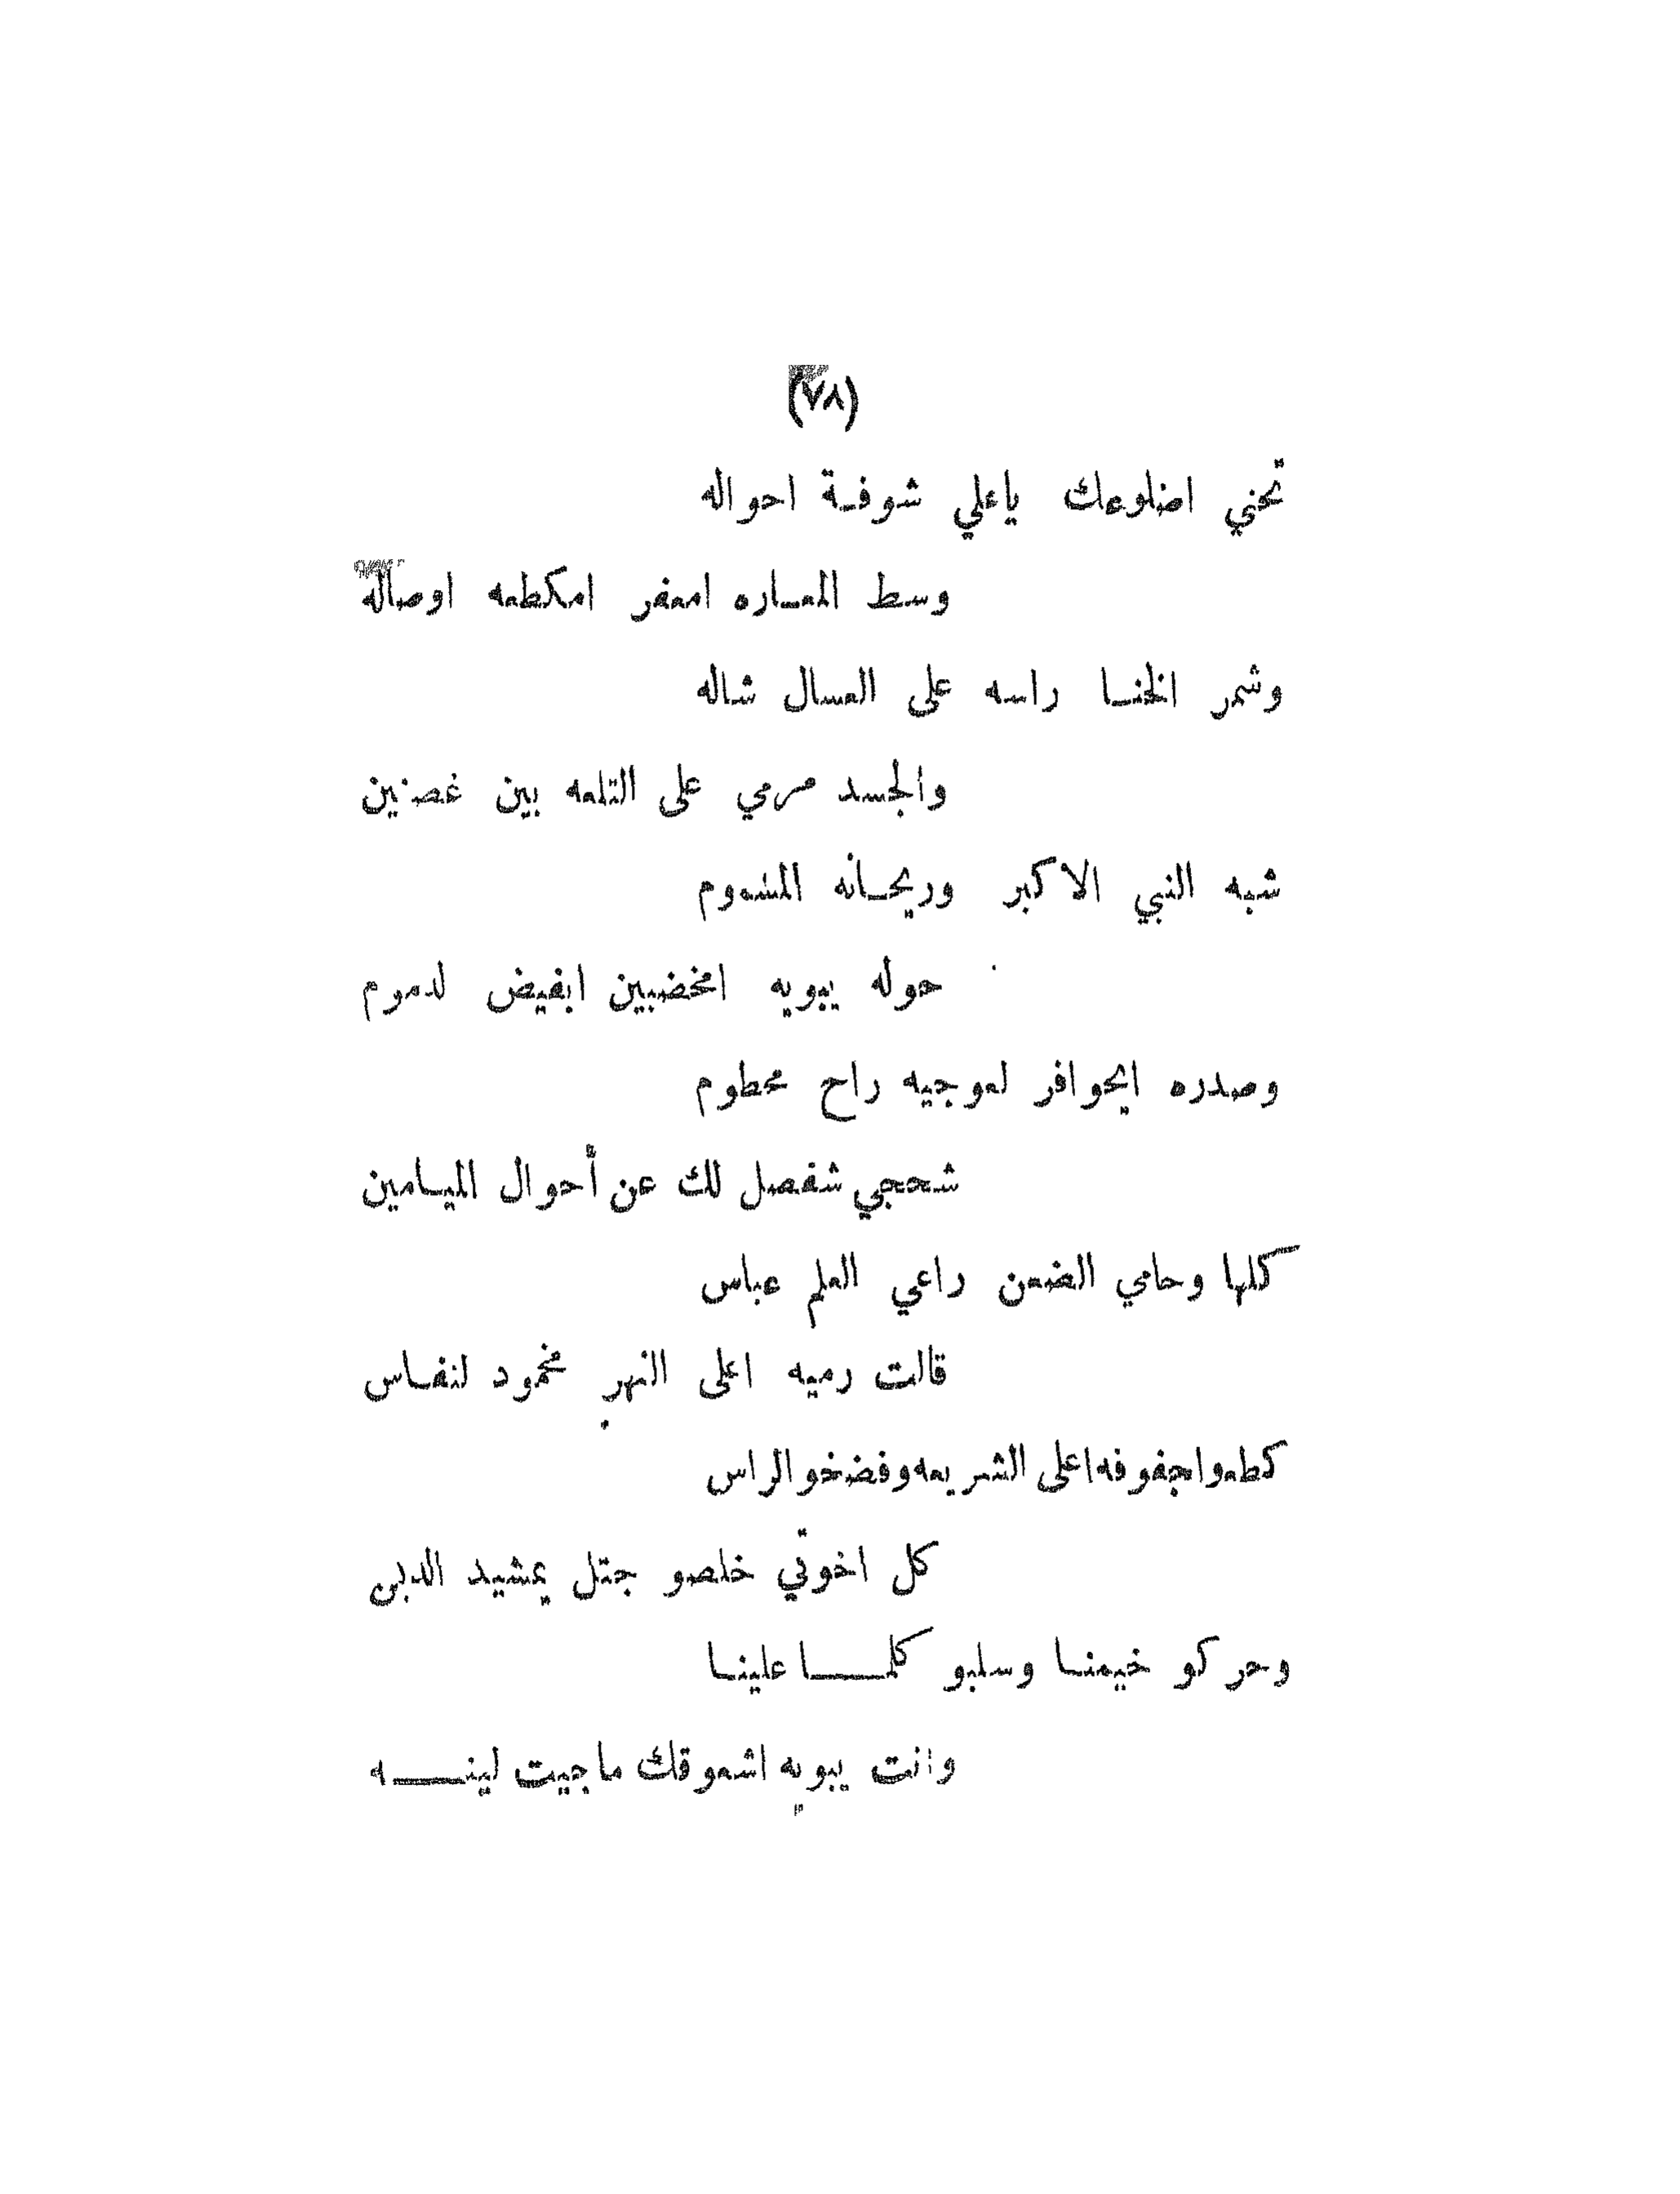 (٧٨)
تحني اضلوعك ياعلي شوفة احواله
وسط المعاره امعفر امكطعه اوصاله
وشمر الخنا راسه على العسال شاله
والجسد مرمي على التلعه بين غصنين
شبه النبي الاكبر وريحانه المشموم
حوله يبويه امخضبين ابفيض لدموم
وصدره ابحوافر لعوجيه راح محطوم
شحجي شفصل لك عن أحوال الميامين
كلها وحامي الضعن راعي العلم عباس
قالت رميه اعلى النهر مخمود لنفاس
كطعوا جفوفه اعلى الشريعه وفضخو الراس
كل اخوتي خلصو جتل يمشيد الدين
وحركو خيمنا وسلبو كلما علينا
وانت يبويه اشعوقك ماجيت لينه